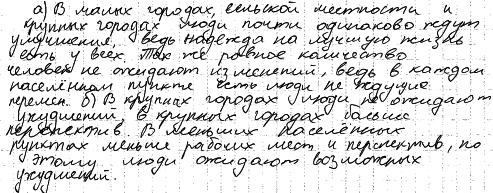 а) В малых городах, сельской местности и
крупных городах люди почти одинаково ждут
улучшения, ведь надежда на лучшую жизнь
есть у всех. Так же равное количество
человек не ожидают изменений, ведь в каждом
населённом пункте есть люди не ждущие
перемен. б) В крупных городах люди не ожидают
ухудшений, в крупных городах больше
перспектив. В меньших населённых
пунктах меньше рабочих мест и перспектив, по
этому люди ожидают возможных
ухудшений.